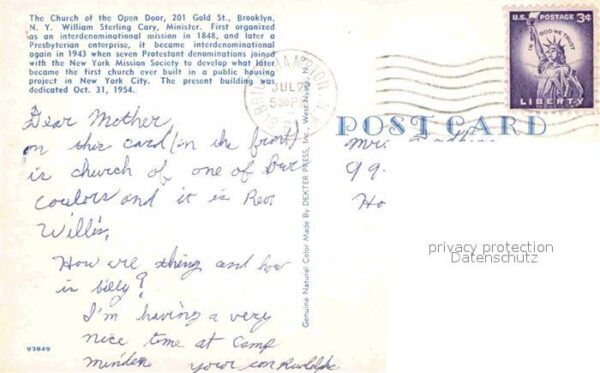 The Church of the Open Door, 201 Gold St., Brooklyn,
N. Y. William Sterling Cary, Minister. First organized
as an interdenominational mission in 1848, and later a
Presbyterian enterprise, it became interdenominational
again in 1943 when seven Protestant denominations joined
with the New York Mission Society to develop what later
became the first church ever built in a public housing
project in New York City. The present building was
dedicated Oct. 31, 1954.
Dear Mother,
on this card (on the front)
is church of one of Our
and it is Rev.
Willis,
How are thing and how
is billy?
I'm having a very
nice time at Camp
Minden your son Rudolph
93849
Genuine Natural Color Made By DEXTER PRESS, Inc. West Nyack, N.
JUL
5 PM
N.Y.
U.S. POSTAGE 3¢
IN GOD WE TRUST
LIBERTY
POST CARD
Mrs.
99
Ho
privacy protection
Datenschutz